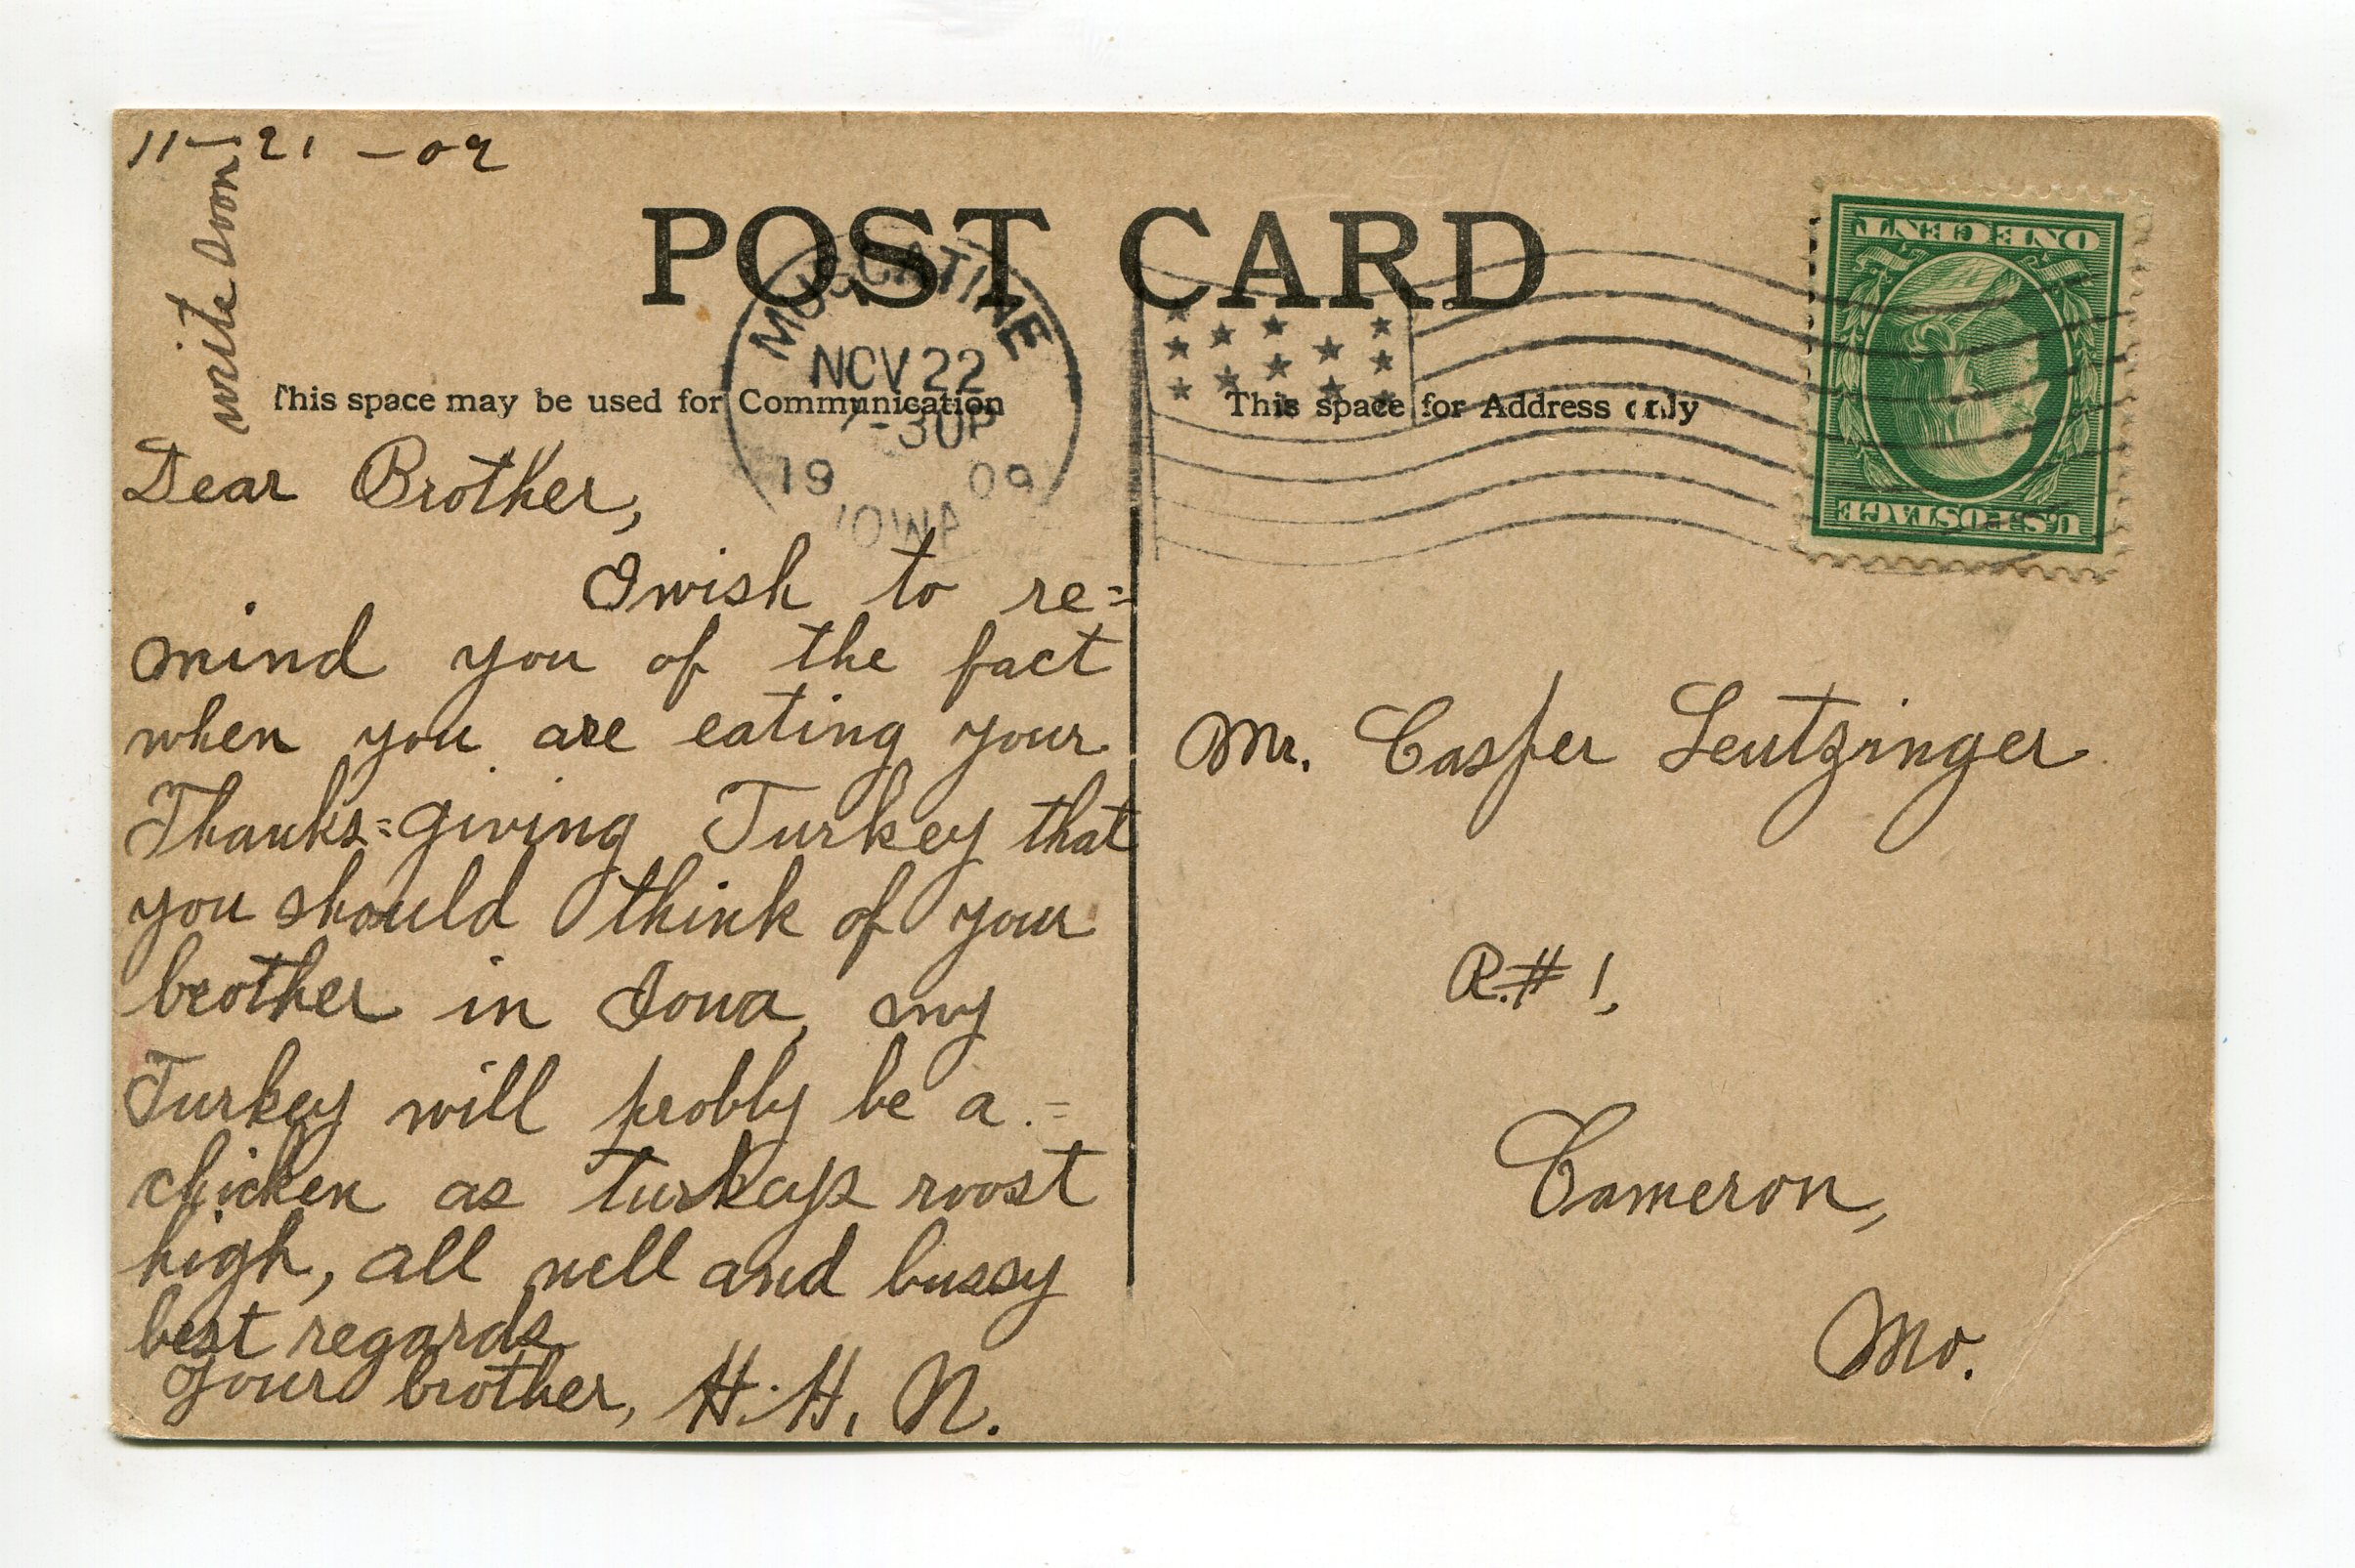 11-21-09
write soon
POST CARD
MUSCATINE
NOV 22
7-30P
19 09
IOWA
This space may be used for Communication
This space for Address only
ONE CENT
U.S. POSTAGE
Dear Brother,
I wish to re=
mind you of the fact
when you are eating your
Thanks=giving Turkey that
you should think of your
brother in Iowa, my
Turkey will probly be a =
chicken as turkeys roost
high, all well and bussy
best regards
your brother, H. H. N.
Mr. Casper Leutzinger
R.# 1,
Cameron,
Mo.